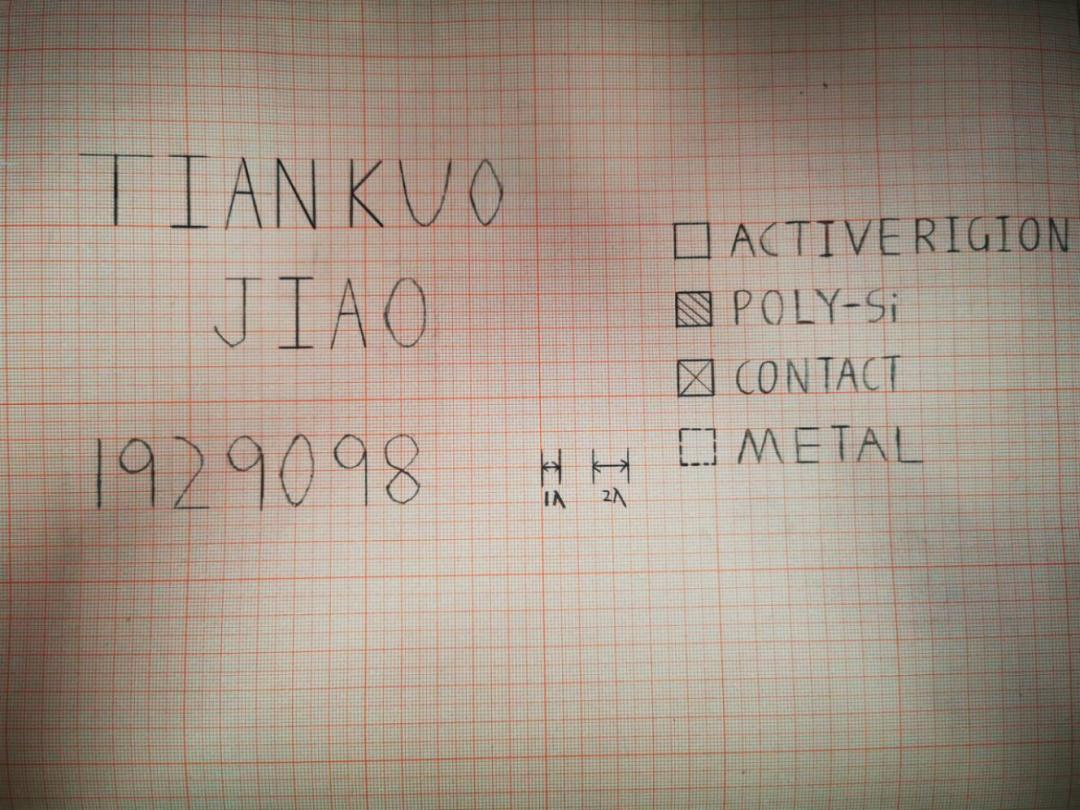 TIANKUO
JIAO
1929098
1λ 2λ
ACTIVERIGION
POLY-Si
CONTACT
METAL